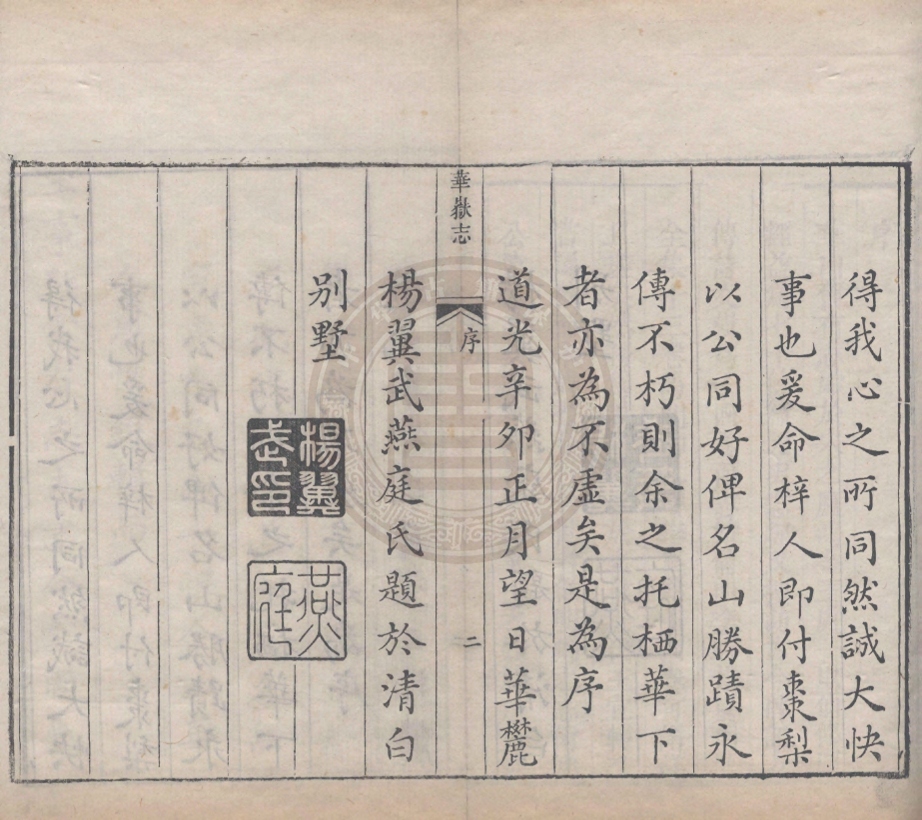 得我心之所同然誠大快
事也爰命梓人即付棗梨
以公同好俾名山勝蹟永
傳不朽則余之托栖華下
者亦為不虛矣是為序
道光辛卯正月望日華麓
華嶽志
序
二
楊翼武燕庭氏題於清白
別墅
楊翼武印
燕庭